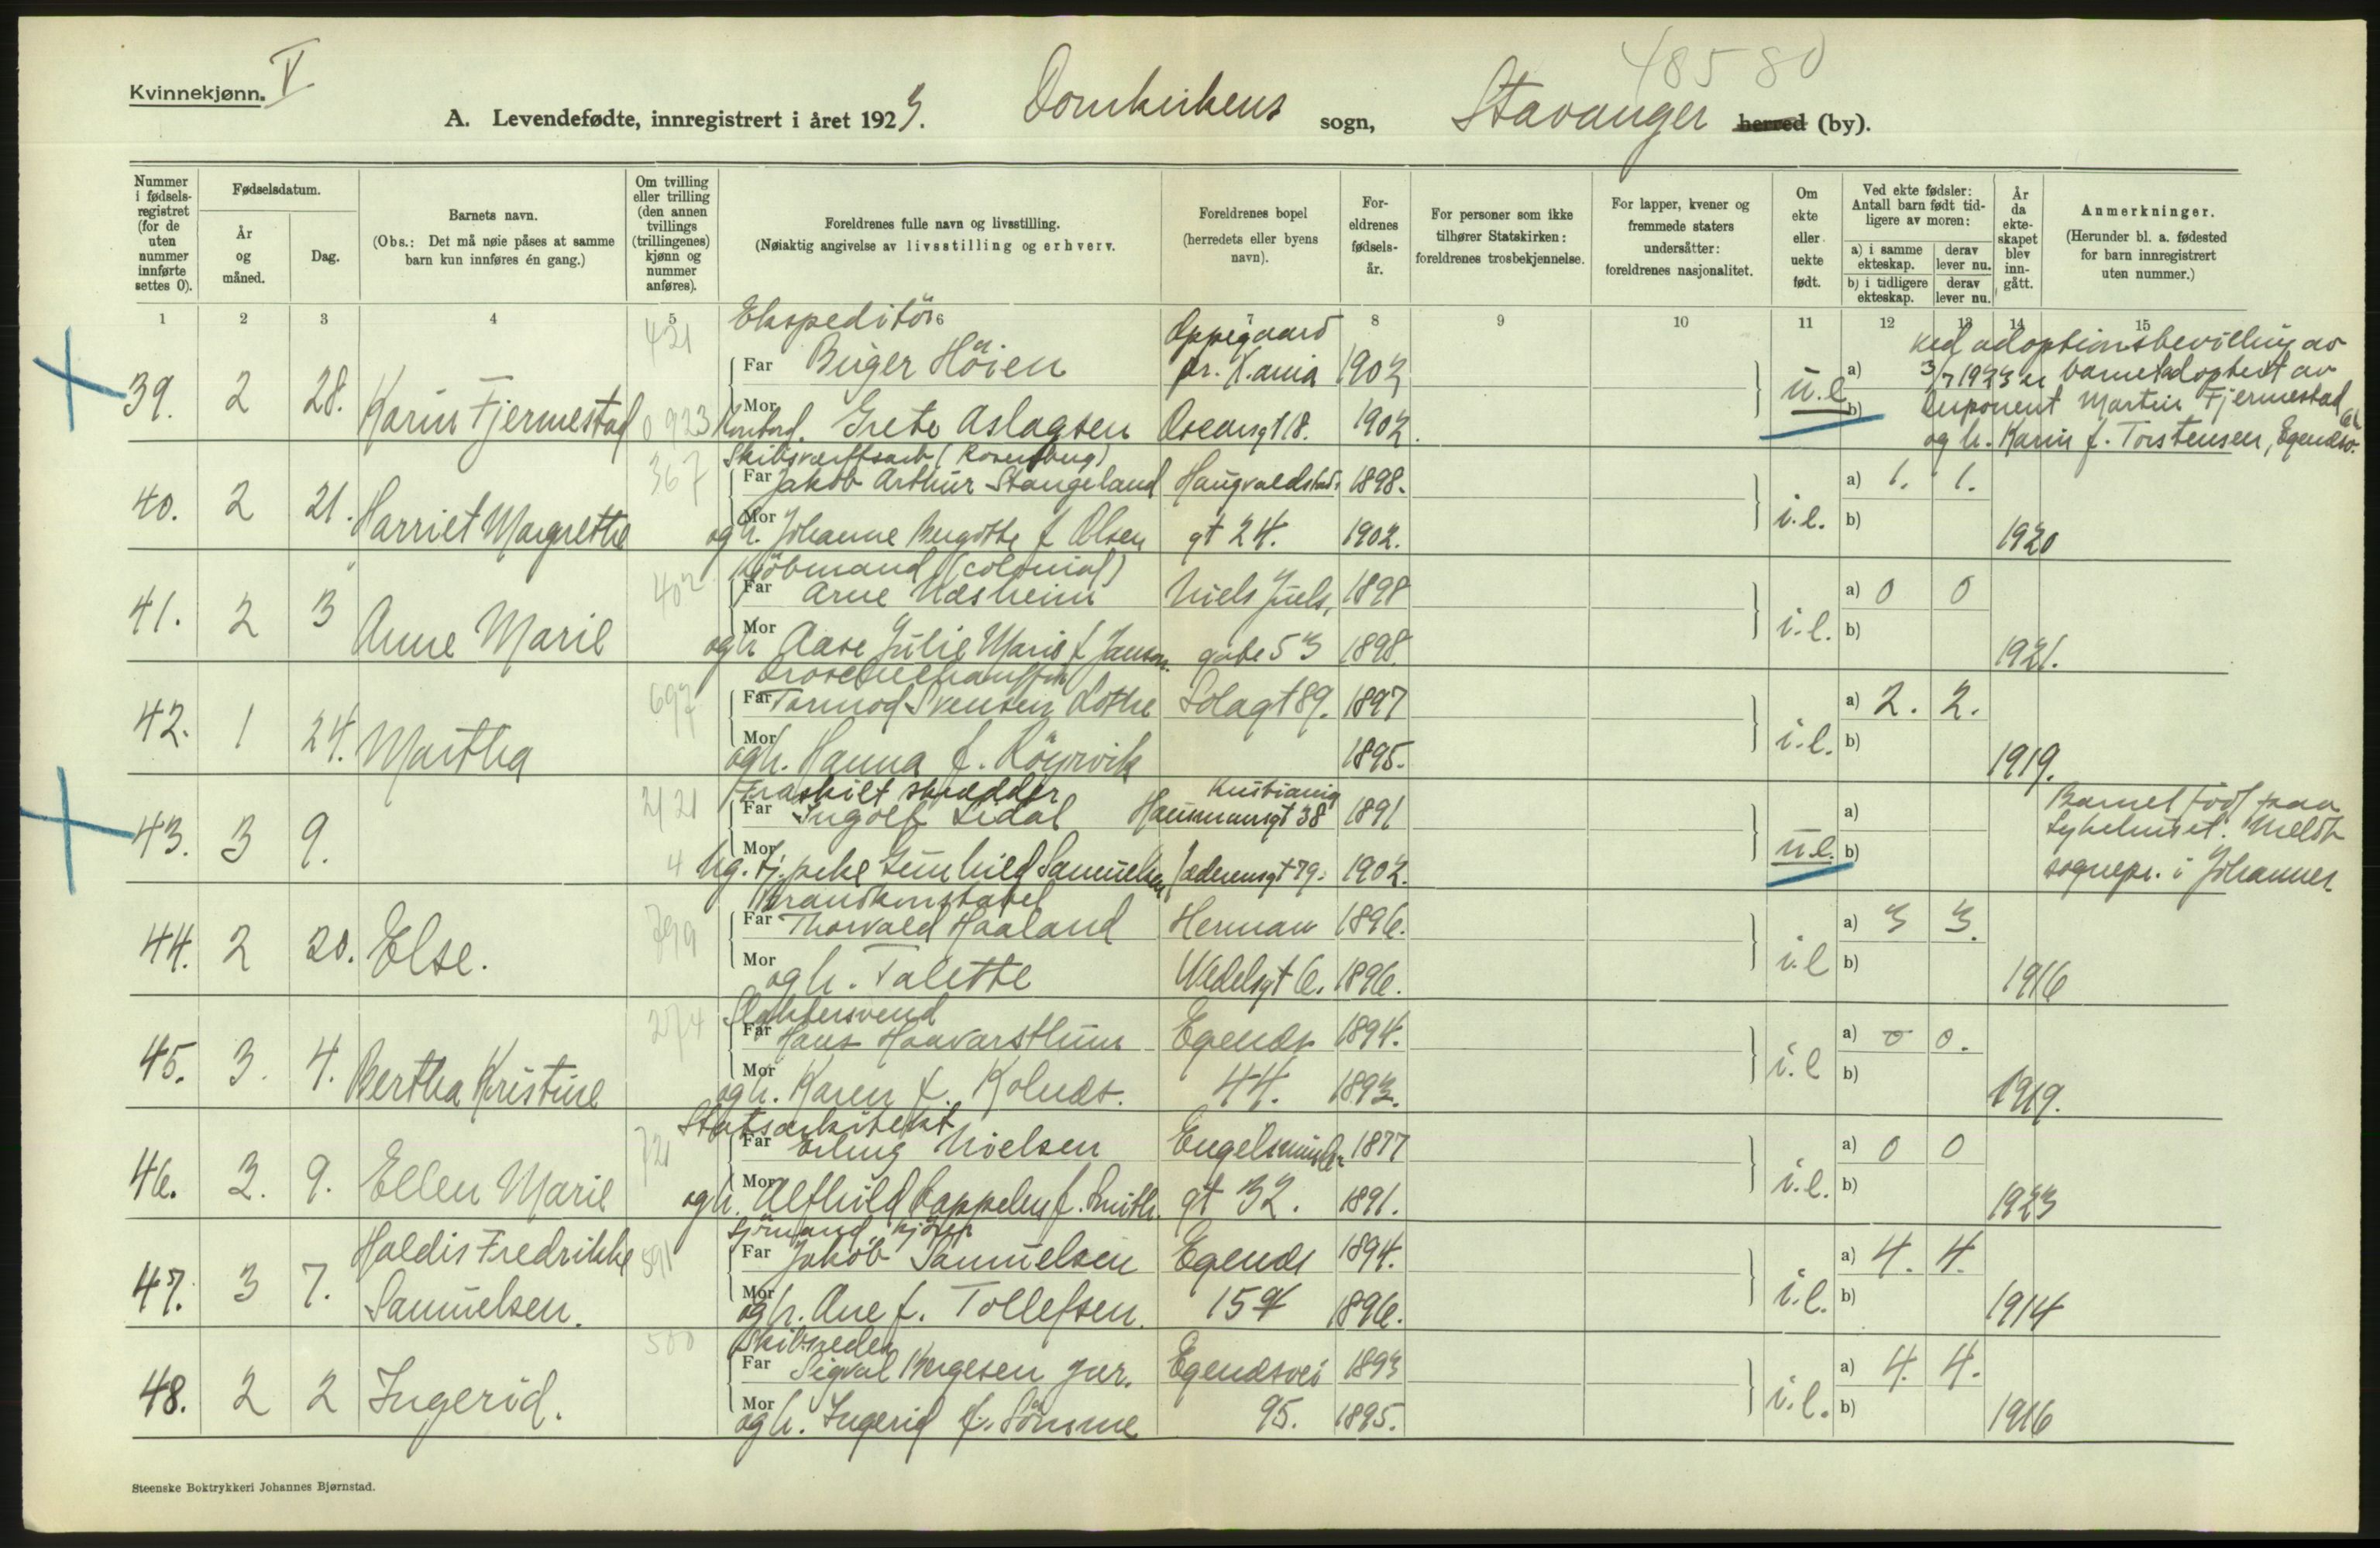 48580
Kvinnekjønn. V
A. Levendefødte, innregistrert i året 1923. Domkirkens sogn, Stavanger herred (by).
Nummer i fødselsregistret (for de uten nummer innførte settes 0).
Fødselsdatum.
År og måned.
Dag.
Barnets navn.
(Obs.: Det må nøie påses at samme barn kun innføres én gang.)
Om tvilling eller trilling (den annen tvillings (trillingenes) kjønn og nummer anføres).
Foreldrenes fulle navn og livsstilling.
(Nøiaktig angivelse av livsstilling og erhverv.
Foreldrenes bopel (herredets eller byens navn).
Foreldrenes fødselsår.
For personer som ikke tilhører Statskirken: foreldrenes trosbekjennelse.
For lapper, kvener og fremmede staters undersåtter: foreldrenes nasjonalitet.
Om ekte eller uekte født.
Ved ekte fødsler: Antall barn født tidligere av moren:
a) i samme ekteskap. derav lever nu.
b) i tidligere ekteskap. derav lever nu.
År da ekteskapet blev inngått.
Anmerkninger.
(Herunder bl. a. fødested for barn innregistrert uten nummer.)
1 2 3 4 5 6 7 8 9 10 11 12 13 14 15
421 Ekspeditör Oppegaard ved adoptionsbevilling av
Far Birger Höien pr. K.ania 1902 a) 3/7 1923 er barnet adoptert av
39. 2 28. Karin Fjermestad u.e. b) Disponent Martin Fjermestad
0923 Mor Kontord. Grete Aslagsen Oscarsgt 18. 1902. og h. Karin f. Torstensen, Egenesv.
367 Skibsværftsarb (Rosenberg)
Far Jakob Arthur Stangeland Haugvaldstads 1898. a) 1. 1.
40. 2 21. Harriet Margrethe i.e. b)
Mor og h. Johanne Bergitte f Olsen gt 24. 1902. 1920
402 Kjöbmand (colonial)
Far Arne Næsheim Niels Juels, 1898 a) 0 0
41. 2 3 Anne Marie i.e. b)
Mor og h Aase Julie Marie f Janson gate 53 1898. 1921.
697 Drosche
Far Tormod Svensen Lothe Solagt 89. 1897 a) 2. 2.
42. 1 24. Martha i.e. b)
Mor og h. Hanna f. Röyrvik 1895. 1919.
2121 Fraskilt skrædder Kristiania Barnet født paa
Far Ingolf Lidal Hausmansgt 38 1891 a) Sykehuset. Meldt
43. 3 9. u.e. b) sognepr. i Johannes
4 Mor Ug. tj.pike Gunhild Samuelsen Jæderensgt 79. 1902.
799 Brandkonstabel
Far Thorvald Haaland Herman 1896. a) 3 3.
44. 2 20. Else. i.e b)
Mor og h. Talette Wedelsgt 6. 1896. 1916
274 Slaktersvend
Far Hans Haavarsthun Egenes 1894. a) 0 0.
45. 3. 4. Bertha Kristine i.e b)
Mor og h. Karen f. Kolnes. 44. 1893. 1919.
721 Statsarkitekt
Far Erling Nielsen 1877 a) 0 0
46. 3. 9. Ellen Marie i.e. b)
Mor og h. Alfhild Cappelen f. Smith. gt 32. 1891. 1923
591 Sjömand
Far Jakob Samuelsen Egenes 1894. a) 4. 4.
47. 3 7. Haldis Fredrikke Samuelsen. i.e. b)
Mor og h. Ane f. Tollefsen. 1896. 1914
500 Skibsreder
Far Sigval Bergesen jur. Egenesvei 1893 a) 4. 4.
48. 2 2 Ingerid. i.e. b)
Mor og h. Ingerid f. Sömme 95. 1895. 1916
Steenske Boktrykkeri Johannes Bjørnstad.